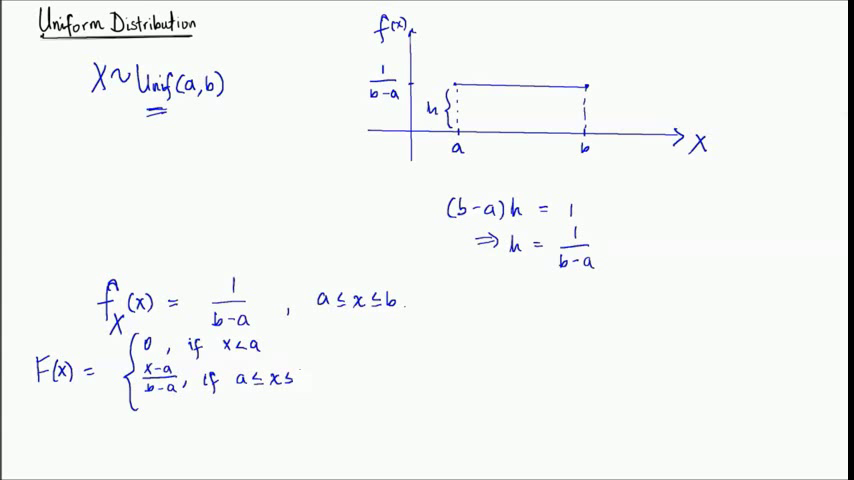 Uniform Distribution
X ~ Unif(a,b)
f(x)
1/(b-a)
h
a
b
X
(b-a)h = 1
⇒ h = 1/(b-a)
f_X(x) = 1/(b-a) , a ≤ x ≤ b.
F(x) = { 0 , if x < a
(x-a)/(b-a) , if a ≤ x ≤